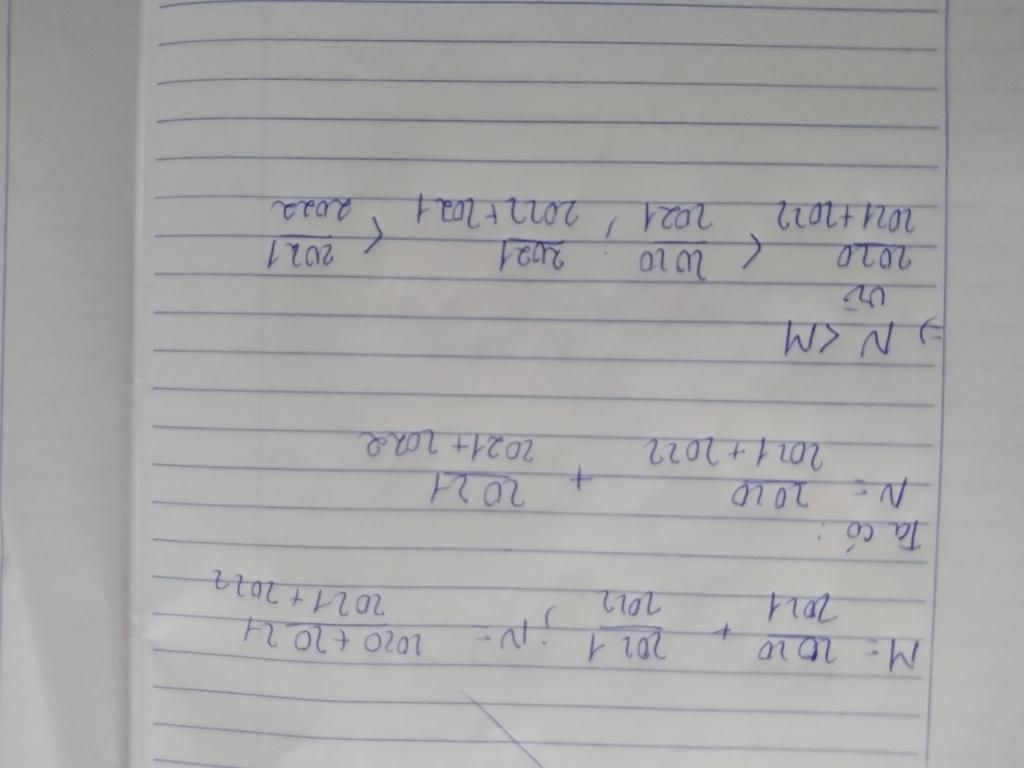 M = 2020/2021 + 2021/2022 ; N = 2020 + 2021/2021 + 2022
Ta có :
N = 2020/2021 + 2022 + 2021/2021 + 2022
=> N < M
Vì
2020/2021 + 2022 < 2020/2021 ; 2021/2022 + 2021 < 2021/2022